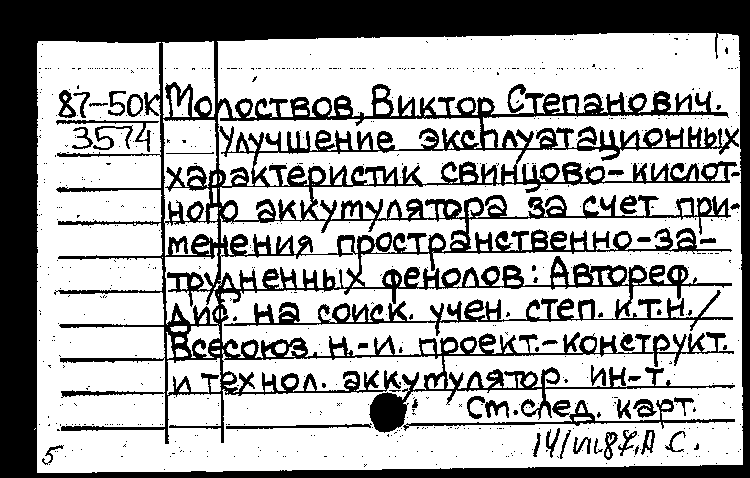 87-50К Молоствов, Виктор Степанович.
3574 Улучшение эксплуатационных
характеристик свинцово-кислот-
ного аккумулятора за счет при-
менения пространственно-за-
трудненных фенолов: Автореф.
Дис. на соиск. учен. степ. к.т.н./
Всесоюз. н.-и. проект.-конструкт.
и технол. аккумулятор. ин-т.
См. след. карт.
5